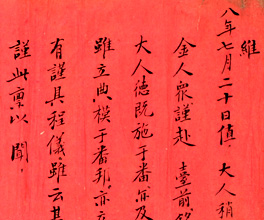 維
八年七月二十日值。大人稍
金人眾謹赴 臺前
大人德既施于番
雖立典模于番邦。亦
有謹具程儀。雖云其
謹此稟以 聞。